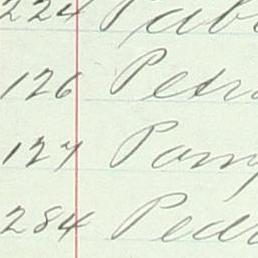 224 Pab
126 Petr
127 Pom
284 Ped